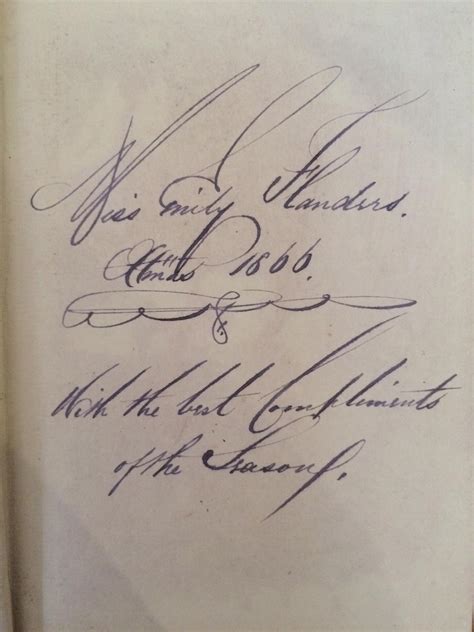 Miss Emily Flanders.
Xmas 1866.
With the best Compliments
of the Season.